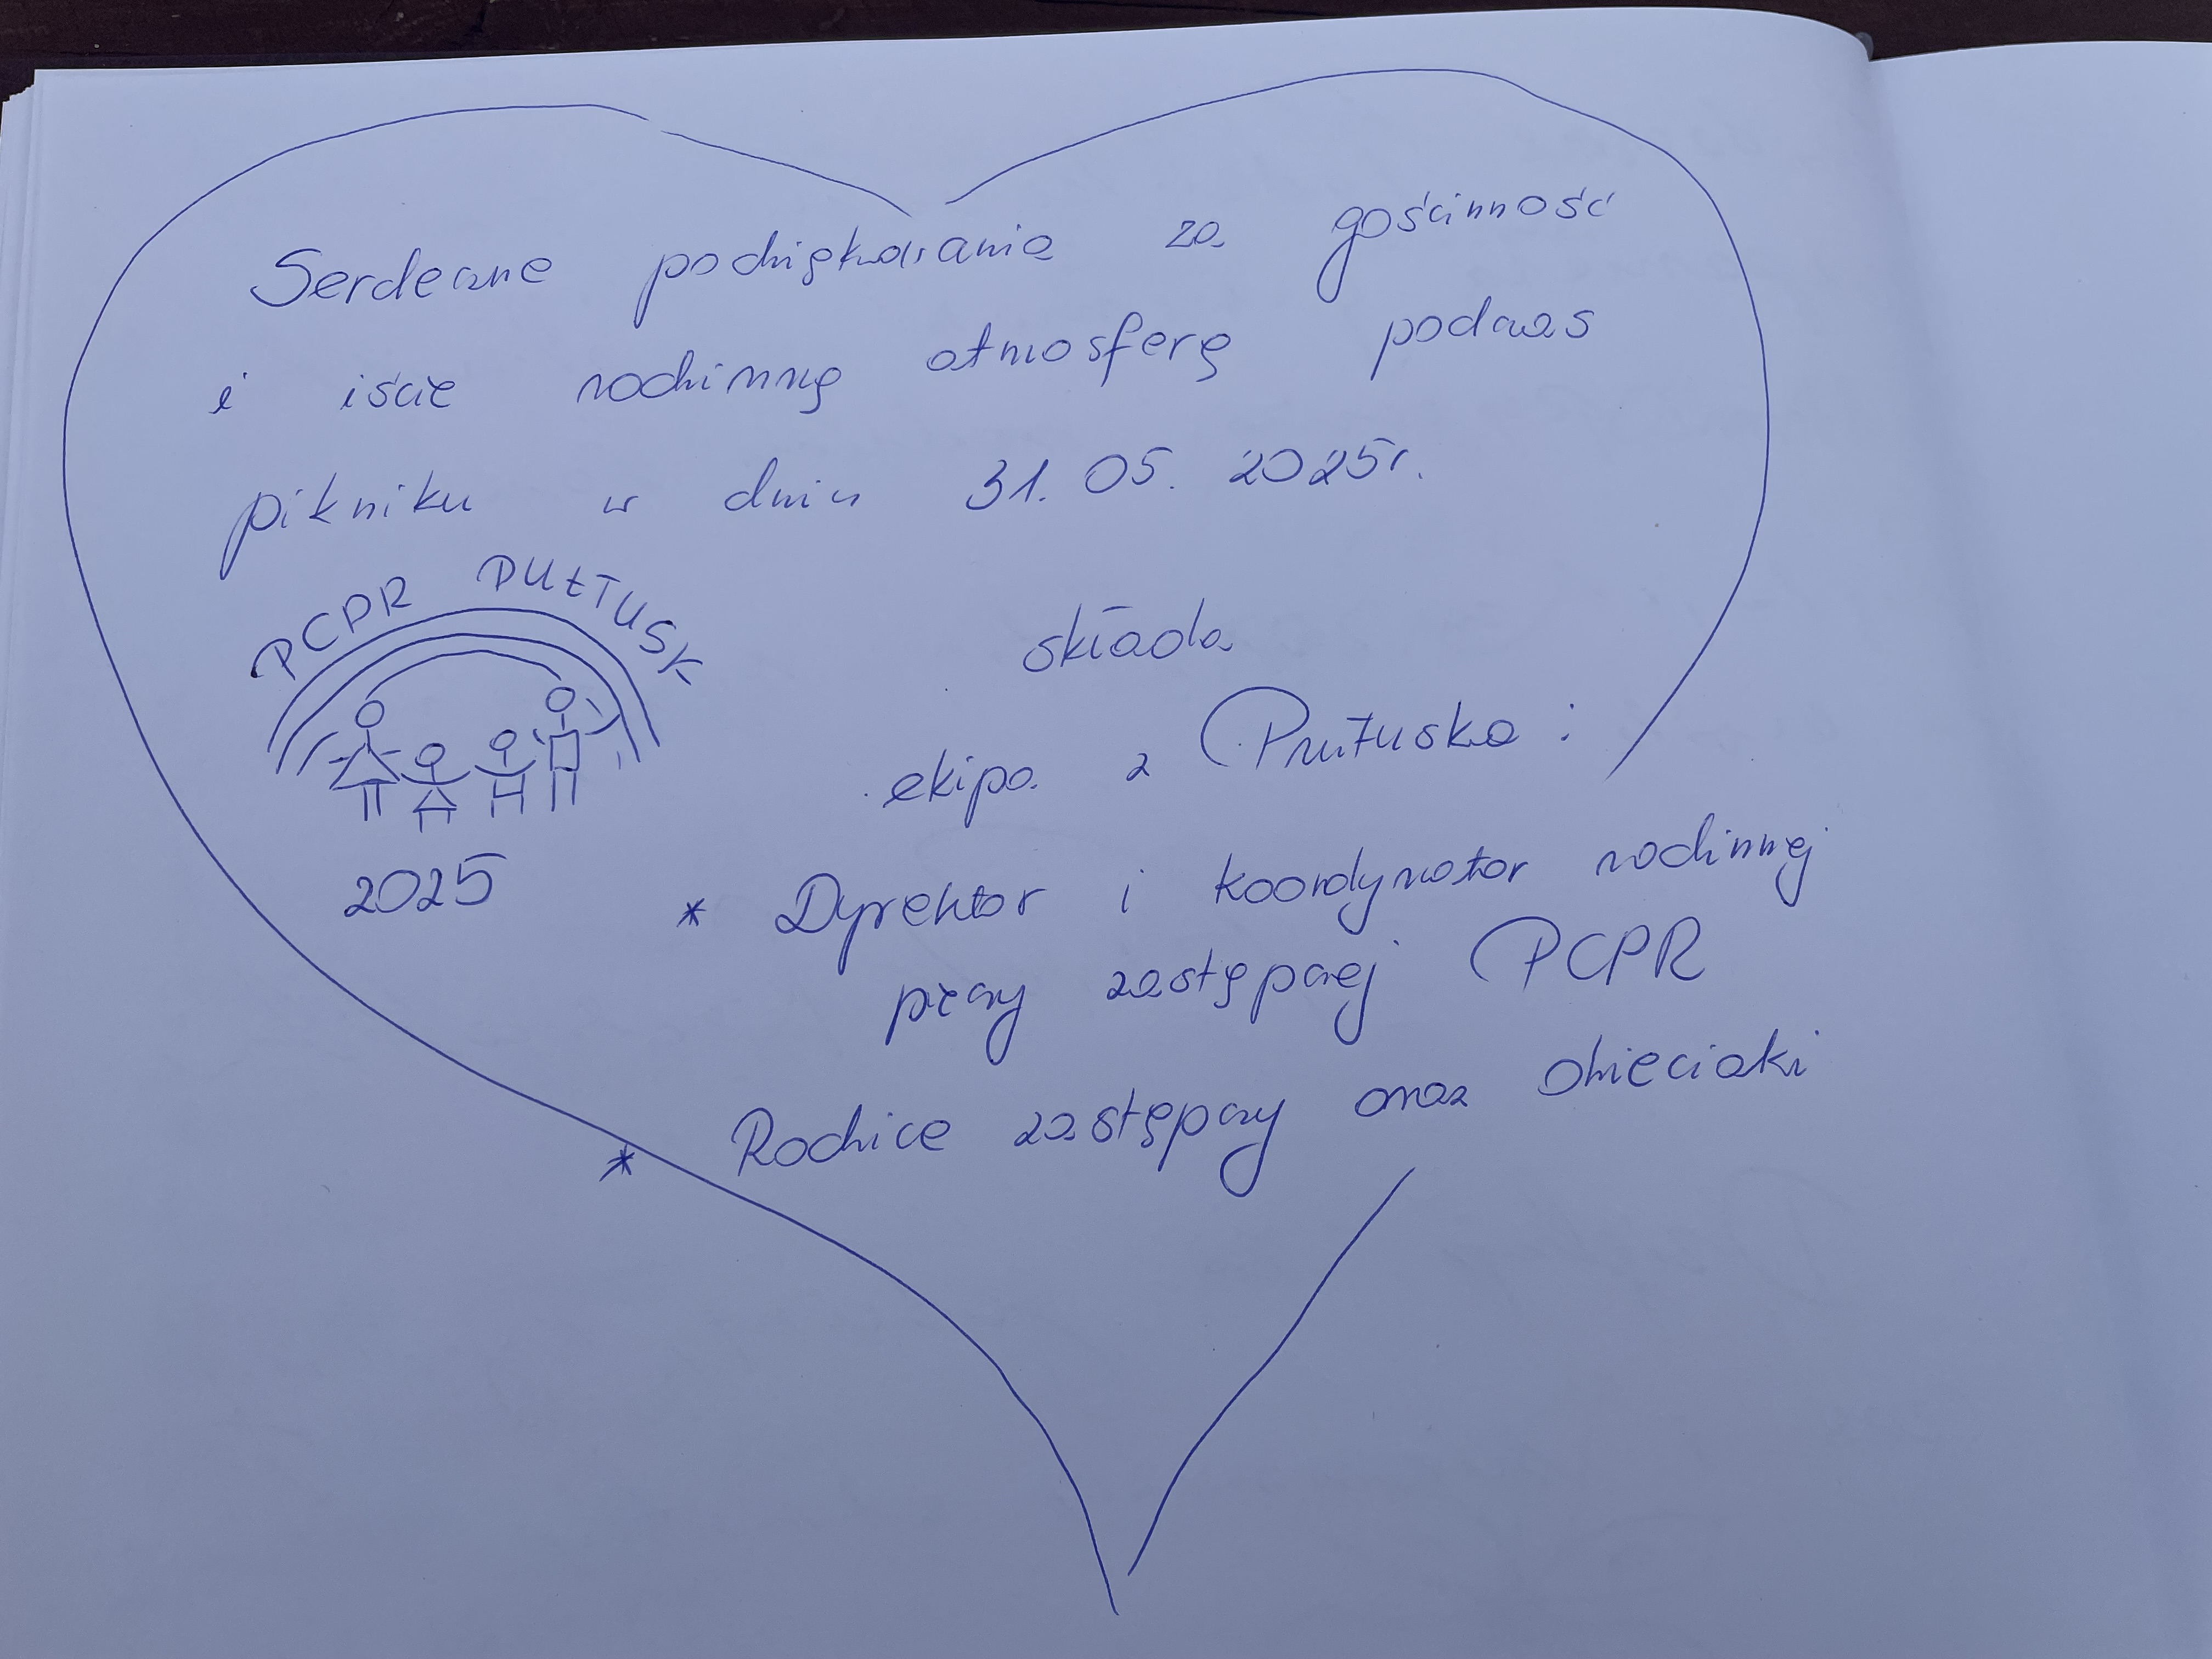 Serdeczne podziękowania za gościnność
i iście rodzinną atmosferę podczas
pikniku w dniu 31.05.2025r.
PCPR PUŁTUSK
2025
składa
ekipa z Pułtuska:
* Dyrektor i koordynator rodzinnej
pieczy zastępczej PCPR
* Rodzice zastępczy oraz dzieciaki